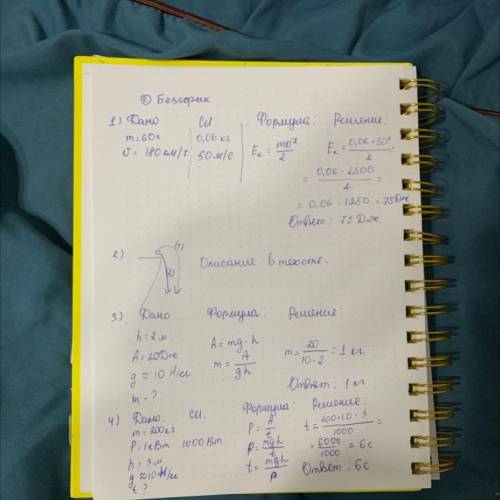 1) Дано СИ Формула: Решение:
m=60г 0,06 кг E_к = mυ²/2 E_к = 0,06 · 50²/2 =
υ = 180 км/ч 50 м/с
= 0,06 · 2500/2 =
= 0,06 · 1250 = 75 Дж
Ответ: 75 Дж
2) Описание в тексте.
3) Дано Формула Решение:
h = 2 м A = mg·h m = 20/10·2 = 1 кг
A = 20 Дж m = A/gh
g ≈ 10 Н/кг
m - ? Ответ: 1 кг
4) Дано: СИ: Формула: Решение:
m = 200 кг P = A/t t = 200·10·3/1000 =
P = 1 кВт 1000 Вт P = mgh/t = 6000/1000 = 6с
h = 3 м t = mgh/P Ответ: 6с
g ≈ 10 Н/кг
t ?